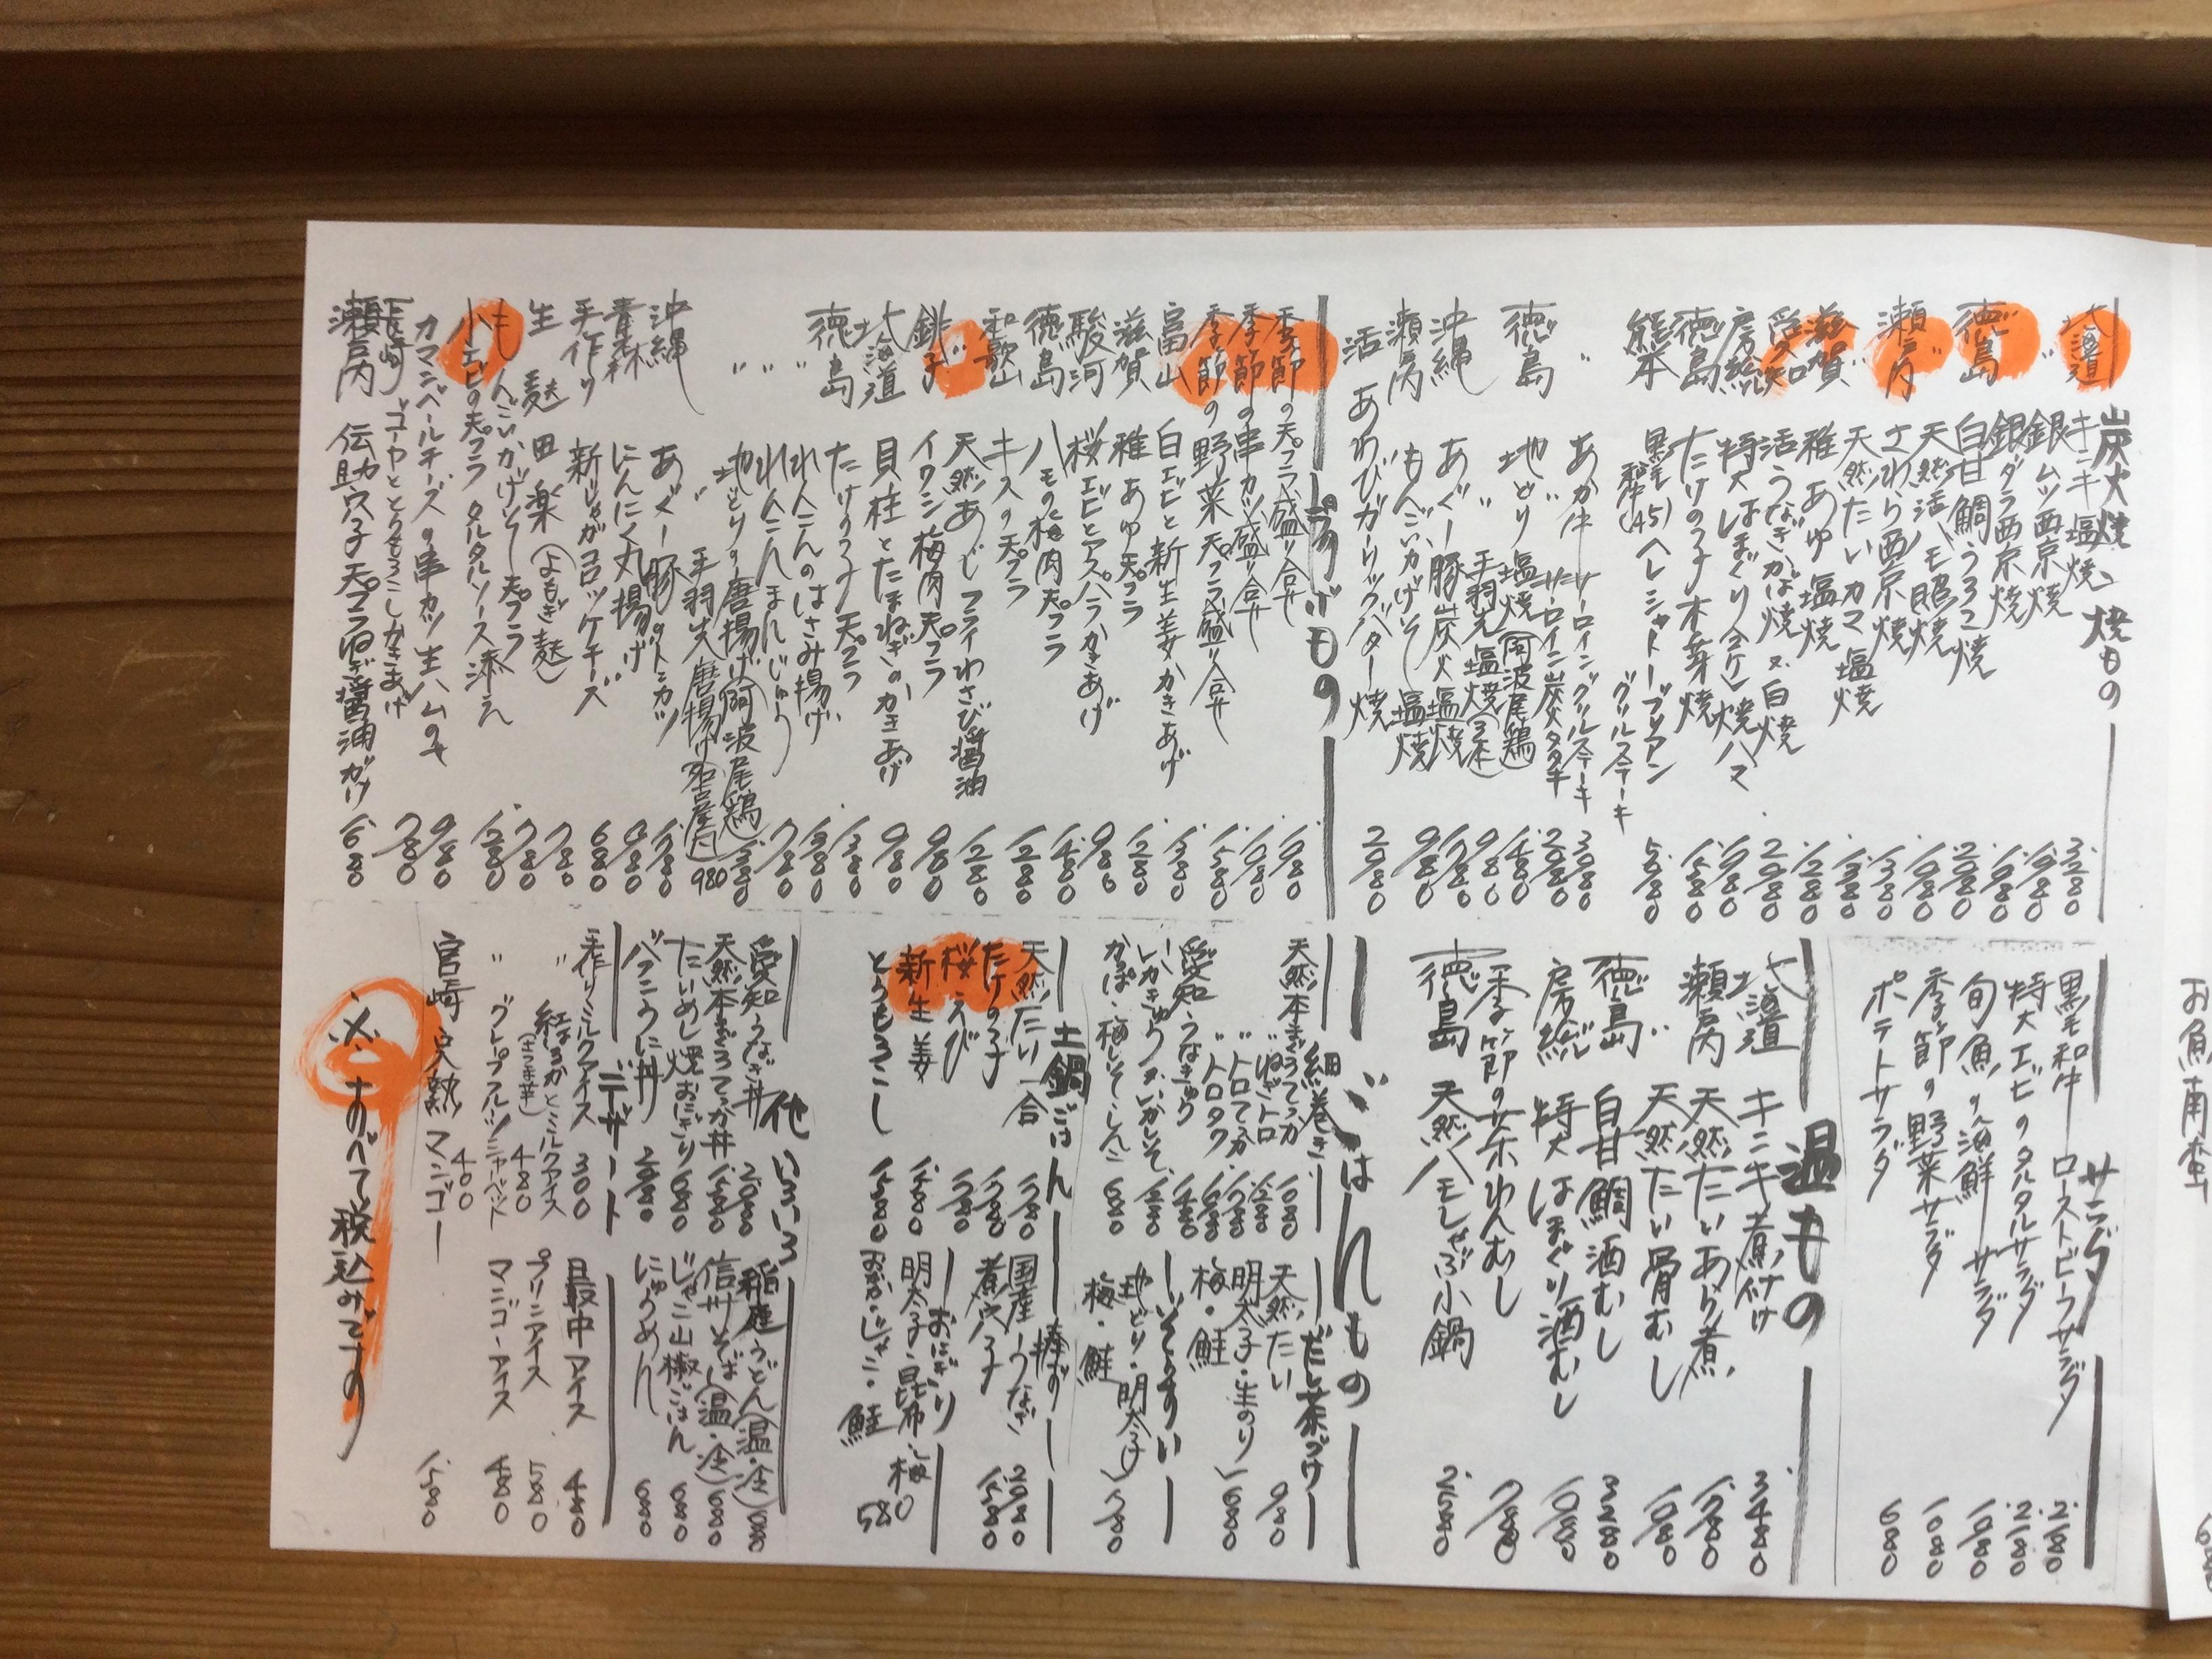 炭火焼、焼もの
北海道 キンキ塩焼 3.280
〃 銀ムツ西京焼 1.980
銀ダラ西京焼 1.980
徳島 白甘鯛うろこ焼 2.980
〃 天然活ハモ照焼 1.980
瀬戸内 さわら西京焼 1.380
天然たいカマ塩焼 1.380
滋賀 稚あゆ塩焼 1.280
愛知 活うなぎかば焼 又 白焼 2.980
房総 特大はまぐり(2ケ)焼 1.980
徳島 たけの子木芽焼 1.580
熊本 黒毛和牛(A5)ヘレシャトーブリアン
グリルステーキ 5.980
〃 あか牛 サーロイングリルステーキ 3.980
サーロイン炭火タタキ 2.980
徳島 地どり塩焼(阿波尾鶏) 1.480
〃 手羽先塩焼(3本) 980
沖縄 あぐー豚炭火塩焼 1.780
瀬戸内 もんごいかげそ塩焼 980
活 あわびガーリックバター焼 2.980
揚げもの
季節の天プラ盛り合せ 1.980
季節の串カツ盛り合せ 1.980
季節の野菜天プラ盛り合せ 1.580
富山 白エビと新生姜かきあげ 1.380
滋賀 稚あゆ天プラ 1.280
駿河 桜エビとアスパラかきあげ 980
徳島 ハモの梅肉天プラ 1.480
和歌山 キスの天プラ 1.280
〃 天然あじフライわさび醤油 1.280
銚子 イワシ梅肉天プラ 980
北海道 貝柱とたまねぎのかきあげ 980
徳島 たけの子天プラ 1.380
〃 れんこんのはさみ揚げ 1.380
〃 れんこんまんじゅう 780
〃 地どりの唐揚げ(阿波尾鶏) 1.380
〃 手羽先唐揚げ(名古屋風) 980
沖縄 あぐー豚のトンカツ 1.780
青森 にんにく丸揚げ 980
手作り 新じゃがコロッケチーズ 680
生麩田楽(よもぎ麩) 780
もんごいかげそ天プラ 780
小エビの天プラ タルタルソース添え 1.280
カマンベールチーズの串カツ生ハムのせ 980
長崎 ゴーヤととうもろこしかきあげ 780
瀬戸内 伝助穴子天プラねぎ醤油がけ 1.680
サラダ
黒毛和牛ローストビーフサラダ 2.180
特大エビのタルタルサラダ 2.180
旬魚の海鮮サラダ 1.980
季節の野菜サラダ 1.080
ポテトサラダ 680
温もの
北海道 キンキ煮付け 3.480
瀬戸内 天然たいあら煮 1.780
〃 天然たい骨むし 1.080
徳島 白甘鯛酒むし 3.280
房総 特大はまぐり酒むし 1.980
季節の茶わんむし 780
徳島 天然ハモしゃぶ小鍋 2.580
ごはんもの
細巻き
天然本まぐろてっか 1.080
〃 ねぎトロ 1.280
〃 トロてっか 1.780
〃 トロタク 1.680
愛知 うなきゅう 1.480
いかきゅう・いかしそ 1.280
かっぱ・梅しそ・しんこ 680
だし茶づけ
天然たい 980
明太子・生のり
梅・鮭 680
ぞうすい
地どり・明太子
梅・鮭 780
土鍋ごはん
天然たい 一合 1.780
たけの子 1.780
桜えび 1.780
新生姜 1.580
とうもろこし 1.580
棒ずし
国産うなぎ 2.980
煮穴子 1.580
おにぎり
明太子・昆布・梅
おかか・じゃこ・鮭 580
他いろいろ
愛知うなぎ丼 2.980
天然本まぐろてっか丼 1.580
たいめし焼おにぎり 680
バフンうに丼 2.980
稲庭うどん(温・冷) 680
信州そば(温・冷) 680
じゃこ山椒ごはん 680
にゅうめん 680
デザート
手作りミルクアイス 300
〃 紅はるかとミルクアイス
(さつま芋) 480
〃 グレープフルーツシャーベット 400
最中アイス 480
プリンアイス 580
マンゴーアイス 480
宮崎 完熟マンゴー 1.580
※すべて税込みです
お魚南蛮